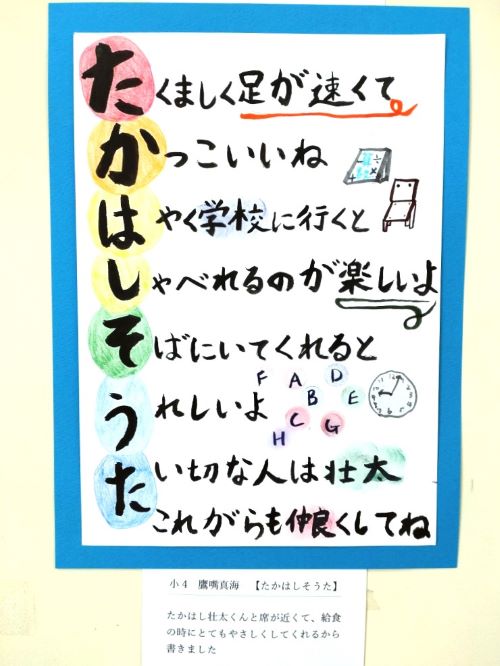 たくましく足が速くて
かっこいいね
はやく学校に行くと
しゃべれるのが楽しいよ
そばにいてくれると
うれしいよ
F A D
B E
C G
H
たい切な人は壮太
これからも仲良くしてね
小4 鷹嘴真海 【たかはしそうた】
たかはし壮太くんと席が近くて、給食
の時にとてもやさしくしてくれるから
書きました